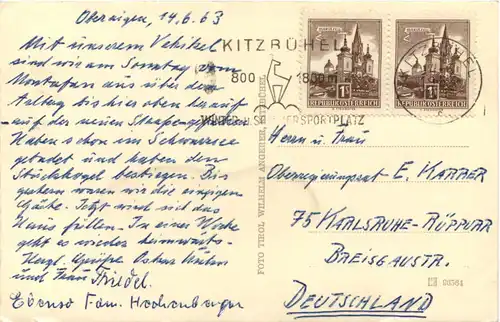 Oberaigen, 14.6.63
Mit unserem Vehikel
sind wir am Sonntag vom
Montafon aus über den
Arlberg bis hier oben herauf
auf der neuen Straße
Haben schon im Schwarzsee
gebadet und haben den
bestiegen. Bis
gestern waren wir die einzigen
Gäste. Jetzt wird sich das
Haus füllen. In einer Woche
geht es wieder heimwärts.
Herzl. Grüße
und Frau Friedel.
Ebenso Fam. Hachenberger
KITZBÜHEL
800 1800 m
WINTER U. SOMMERSPORTPLATZ
REPUBLIK ÖSTERREICH
REPUBLIK ÖSTERREICH
FOTO TIROL WILHELM ANGERER, KITZBÜHEL
Herrn u. Frau
Oberregierungsrat E. KARRER
75 KARLSRUHE-RÜPPURR
BREISGAUSTR.
DEUTSCHLAND
08584